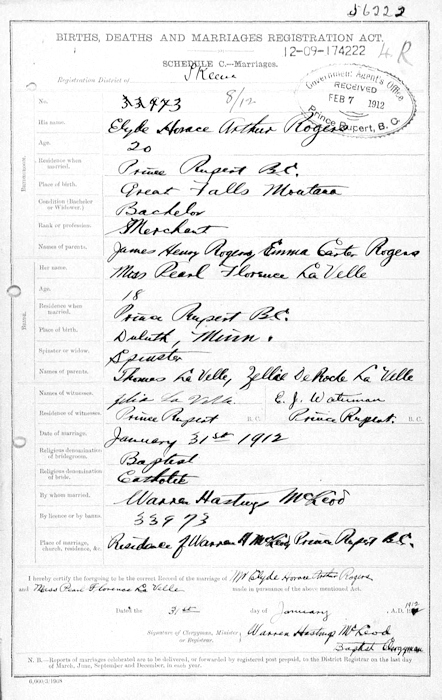 56222
BIRTHS, DEATHS AND MARRIAGES REGISTRATION ACT.
12-09-174222
4R
SCHEDULE C.—Marriages.
Registration District of Skeena
Government Agent's Office
RECEIVED
FEB 7 1912
Prince Rupert, B. C.
No. 33973 8/12
His name. Clyde Horace Arthur Rogers
Age. 20
Residence when married. Prince Rupert B.C.
Place of birth. Great Falls Montana
Condition (Bachelor or Widower.) Bachelor
Rank or profession. Merchant
Names of parents. James Henry Rogers, Emma Carter Rogers
Her name. Miss Pearl Florence La Velle
Age. 18
Residence when married. Prince Rupert B.C.
Place of birth. Duluth, Minn.
Spinster or widow. Spinster
Names of parents. Thomas La Velle, Zellia DeRoche La Velle
Names of witnesses. La Velle E. J. Waterman
Residence of witnesses. Prince Rupert B. C. Prince Rupert. B. C.
Date of marriage. January 31st 1912
Religious denomination of bridegroom. Baptist
Religious denomination of bride. Catholic
By whom married. Warren Hastings McLeod
By licence or by banns. 33973
Place of marriage, church, residence, &c. Residence of Warren H McLeod, Prince Rupert B.C.
Bridegroom.
Bride.
I hereby certify the foregoing to be the correct Record of the marriage of Mr Clyde Horace Arthur Rogers
and Miss Pearl Florence La Velle made in pursuance of the above mentioned Act.
Dated the 31st day of January A.D. 1912
Signature of Clergyman, Minister, or Registrar. Warren Hastings McLeod
Baptist Clergyman
N. B.—Reports of marriages celebrated are to be delivered, or forwarded by registered post prepaid, to the District Registrar on the last day
of March, June, September and December, in each year.
6,000/3/1908